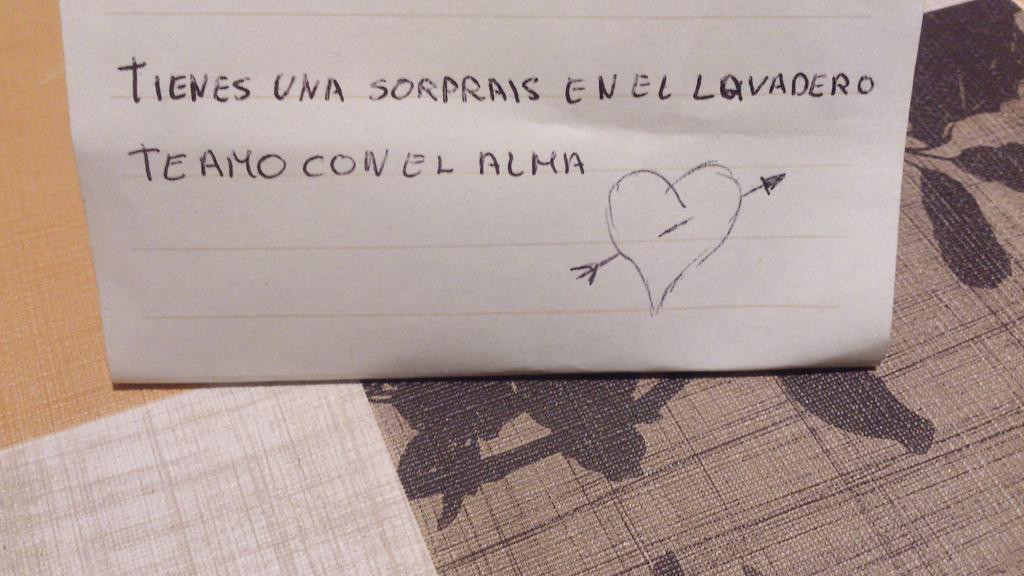 TIENES UNA SORPRAIS EN EL LAVADERO
TE AMO CON EL ALMA